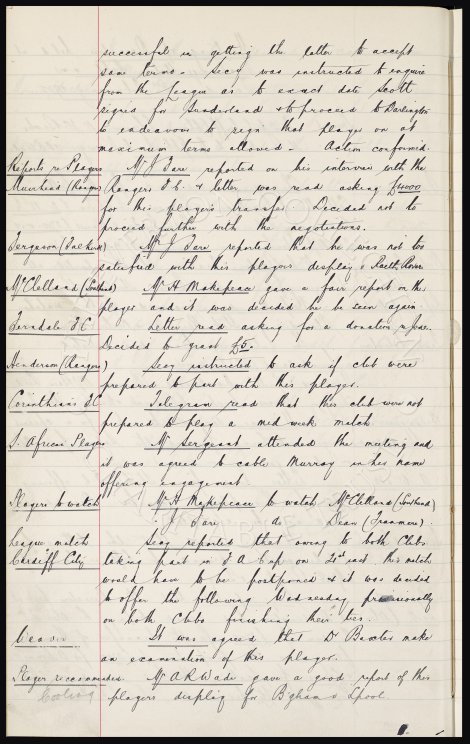 successful in getting the latter to accept
same terms. Secy was instructed to enquire
from the League as to exact date Scott
signed for Sunderland & to proceed to Darlington
to endeavour to sign that player on at
maximum terms allowed. Action confirmed.
Reports re Players Mr J Fare reported on his interview with the
Muirhead (Rangers) Rangers F.C. & letter was read asking £4000
for this players transfer. Decided not to
proceed further with the negotiations.
Ferguson (Falkirk) Mr J Fare reported that he was not too
satisfied with this players display v Raith Rovers
McClelland (Southend) Mr H Makepeace gave a fair report on this
player and it was decided he be seen again
Ferndale F C Letter read asking for a donation
Decided to grant £5.
Henderson (Rangers) Secy instructed to ask if club were
prepared to part with this player.
Corinthians F.C Telegram read that this club were not
prepared to play a mid week match
S. African Players Mr Sergeant attended the meeting and
it was agreed to cable Murray in his name
offering engagement.
Players to watch Mr H Makepeace to watch McClelland (Southend)
" J Fare " do Dean (Tranmere)
League match Secy reported that owing to both Clubs
Cardiff City taking part in F A Cup on 21st inst this match
would have to be postponed & it was decided
to offer the following Wednesday provisionally
on both Clubs finishing their ties.
It was agreed that Dr Baxter make
an examination of this player.
Player recommended Mr A R Wade gave a good report of this
players display for B'gham v Lpool